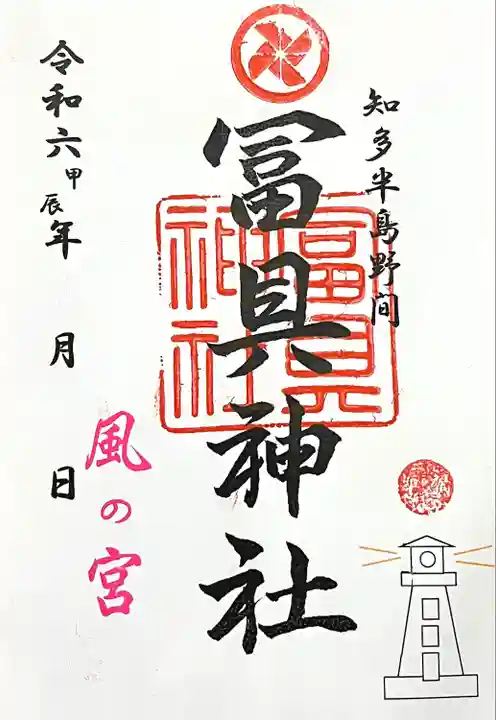 知多半島野间
冨具神社
冨具神社
令和六甲辰年 月 日
風の宮